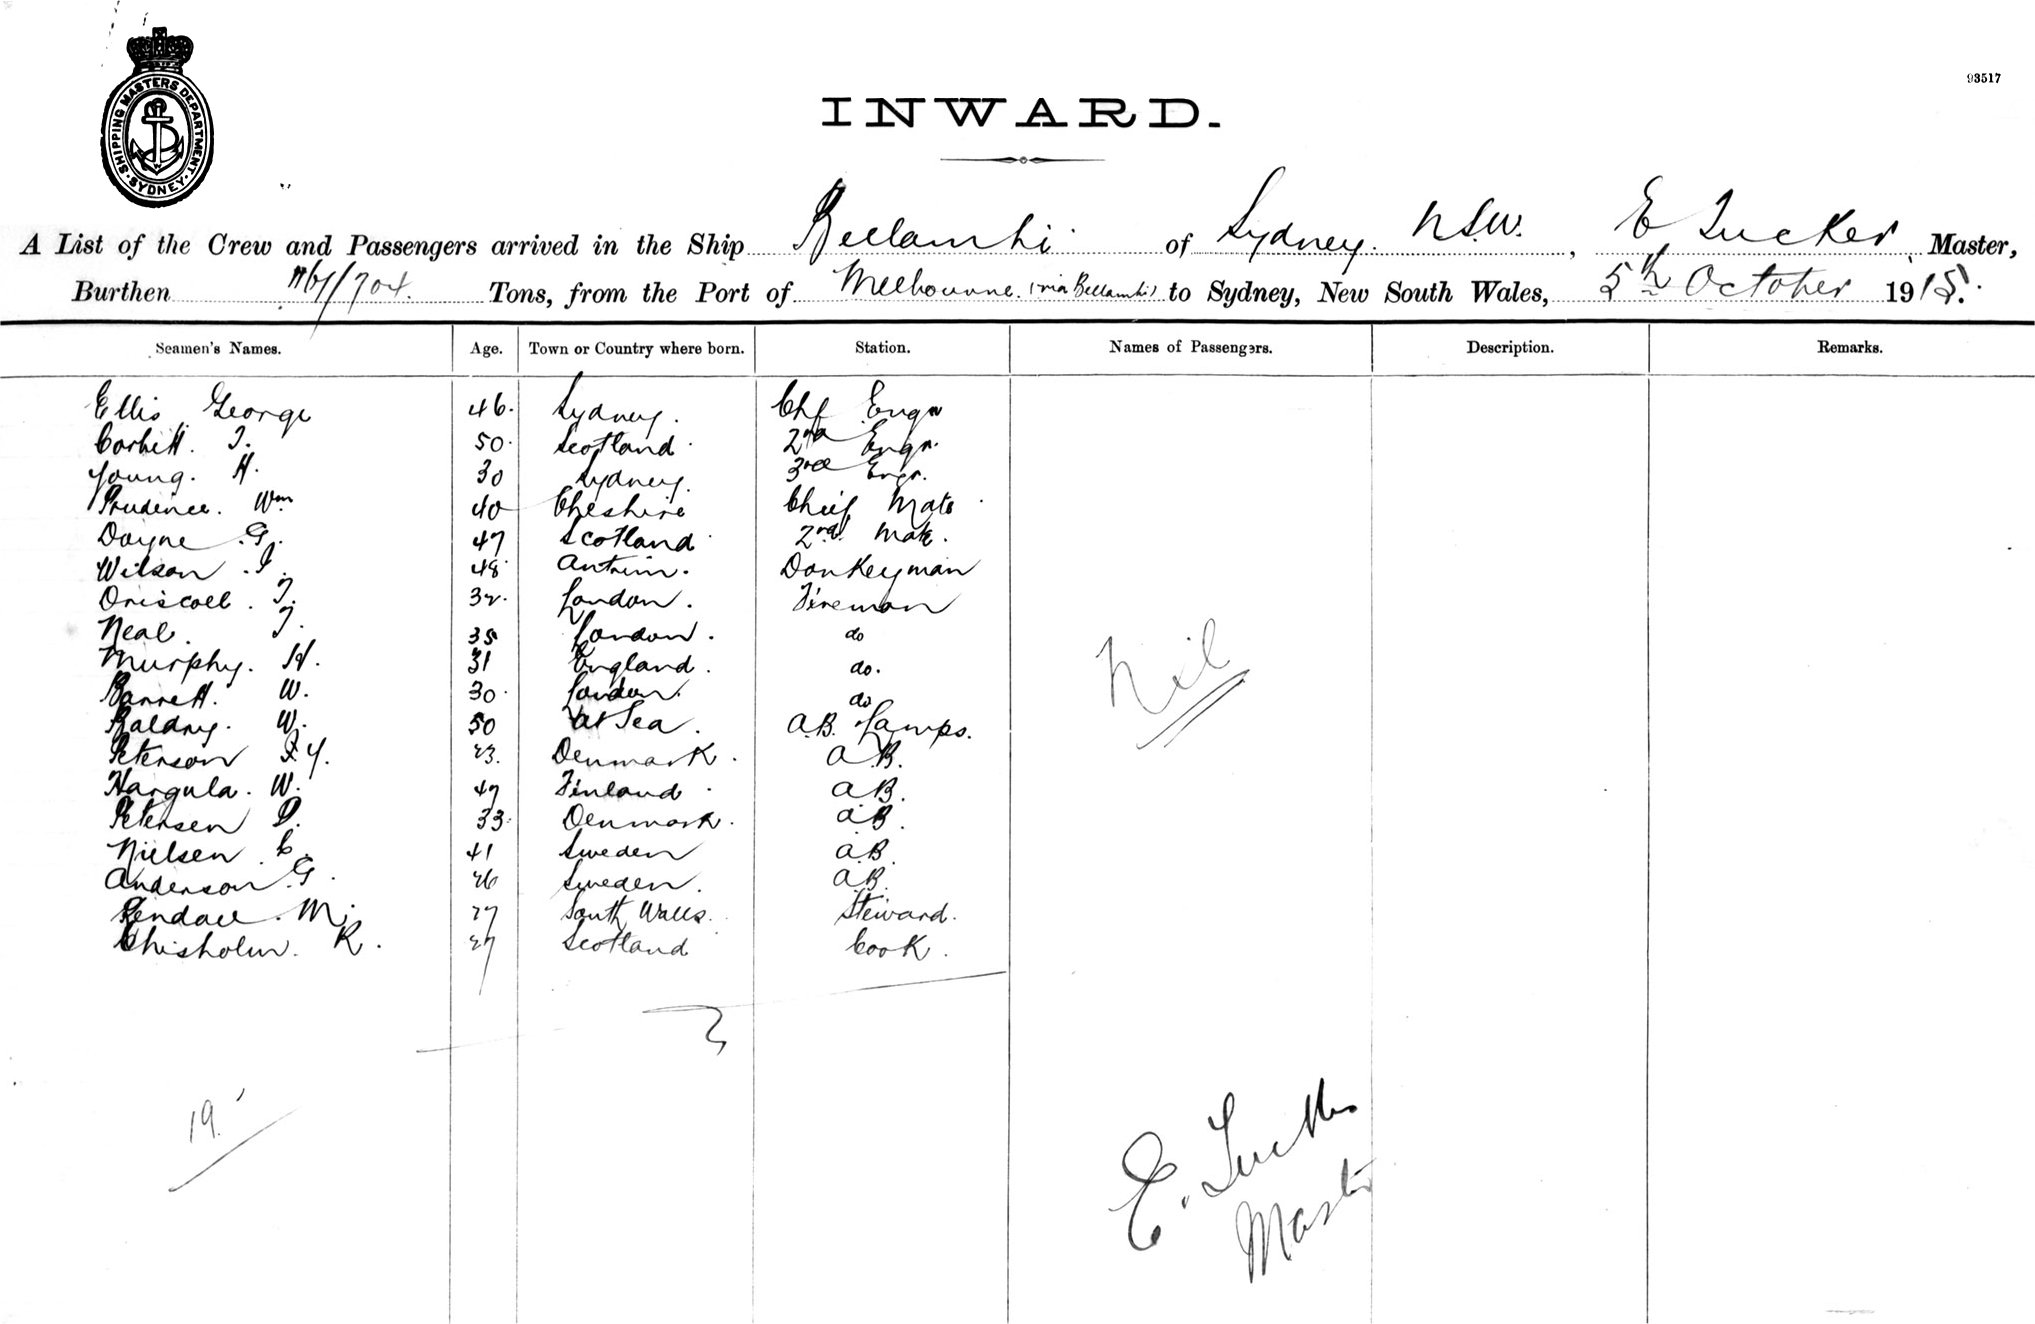 SHIPPING MASTERS DEPARTMENT. SYDNEY.
93517
INWARD.
A List of the Crew and Passengers arrived in the Ship Bellambi of Sydney. N.S.W., E Tucker, Master,
Burthen Tons, from the Port of Melbourne. (via Bellambi) to Sydney, New South Wales, 5th October 1915.
Seamen's Names. Age. Town or Country where born. Station. Names of Passengers. Description. Remarks.
Ellis George 46. Sydney. Chf Engr
Corbett. J. 50. Scotland. 2nd Engr.
Young. H. 30 Sydney. 3rd Engr.
Prudence. Wm 40 Cheshire Chief Mate
Doyne G. 47 Scotland 2nd Mate.
Wilson J. 48 Antrim. Donkeyman
Driscoll. J. 32. London. Fireman
Neal. J. 35 London. do
Murphy. H. 31 England. do.
Barrett. W. 30. London. do
Baldry. W. 50 at Sea. A.B. Lamps.
Peterson 23. Denmark. A.B.
Hargula. W. 47 Finland A.B.
Petersen P. 33. Denmark. A.B.
Nielsen C. 41 Sweden A.B.
Anderson G. 26 Sweden. A.B.
Kendall. M. 27 South Wales. Steward.
Chisholm. R. 27 Scotland Cook.
Nil
19
E. Tucker
Master